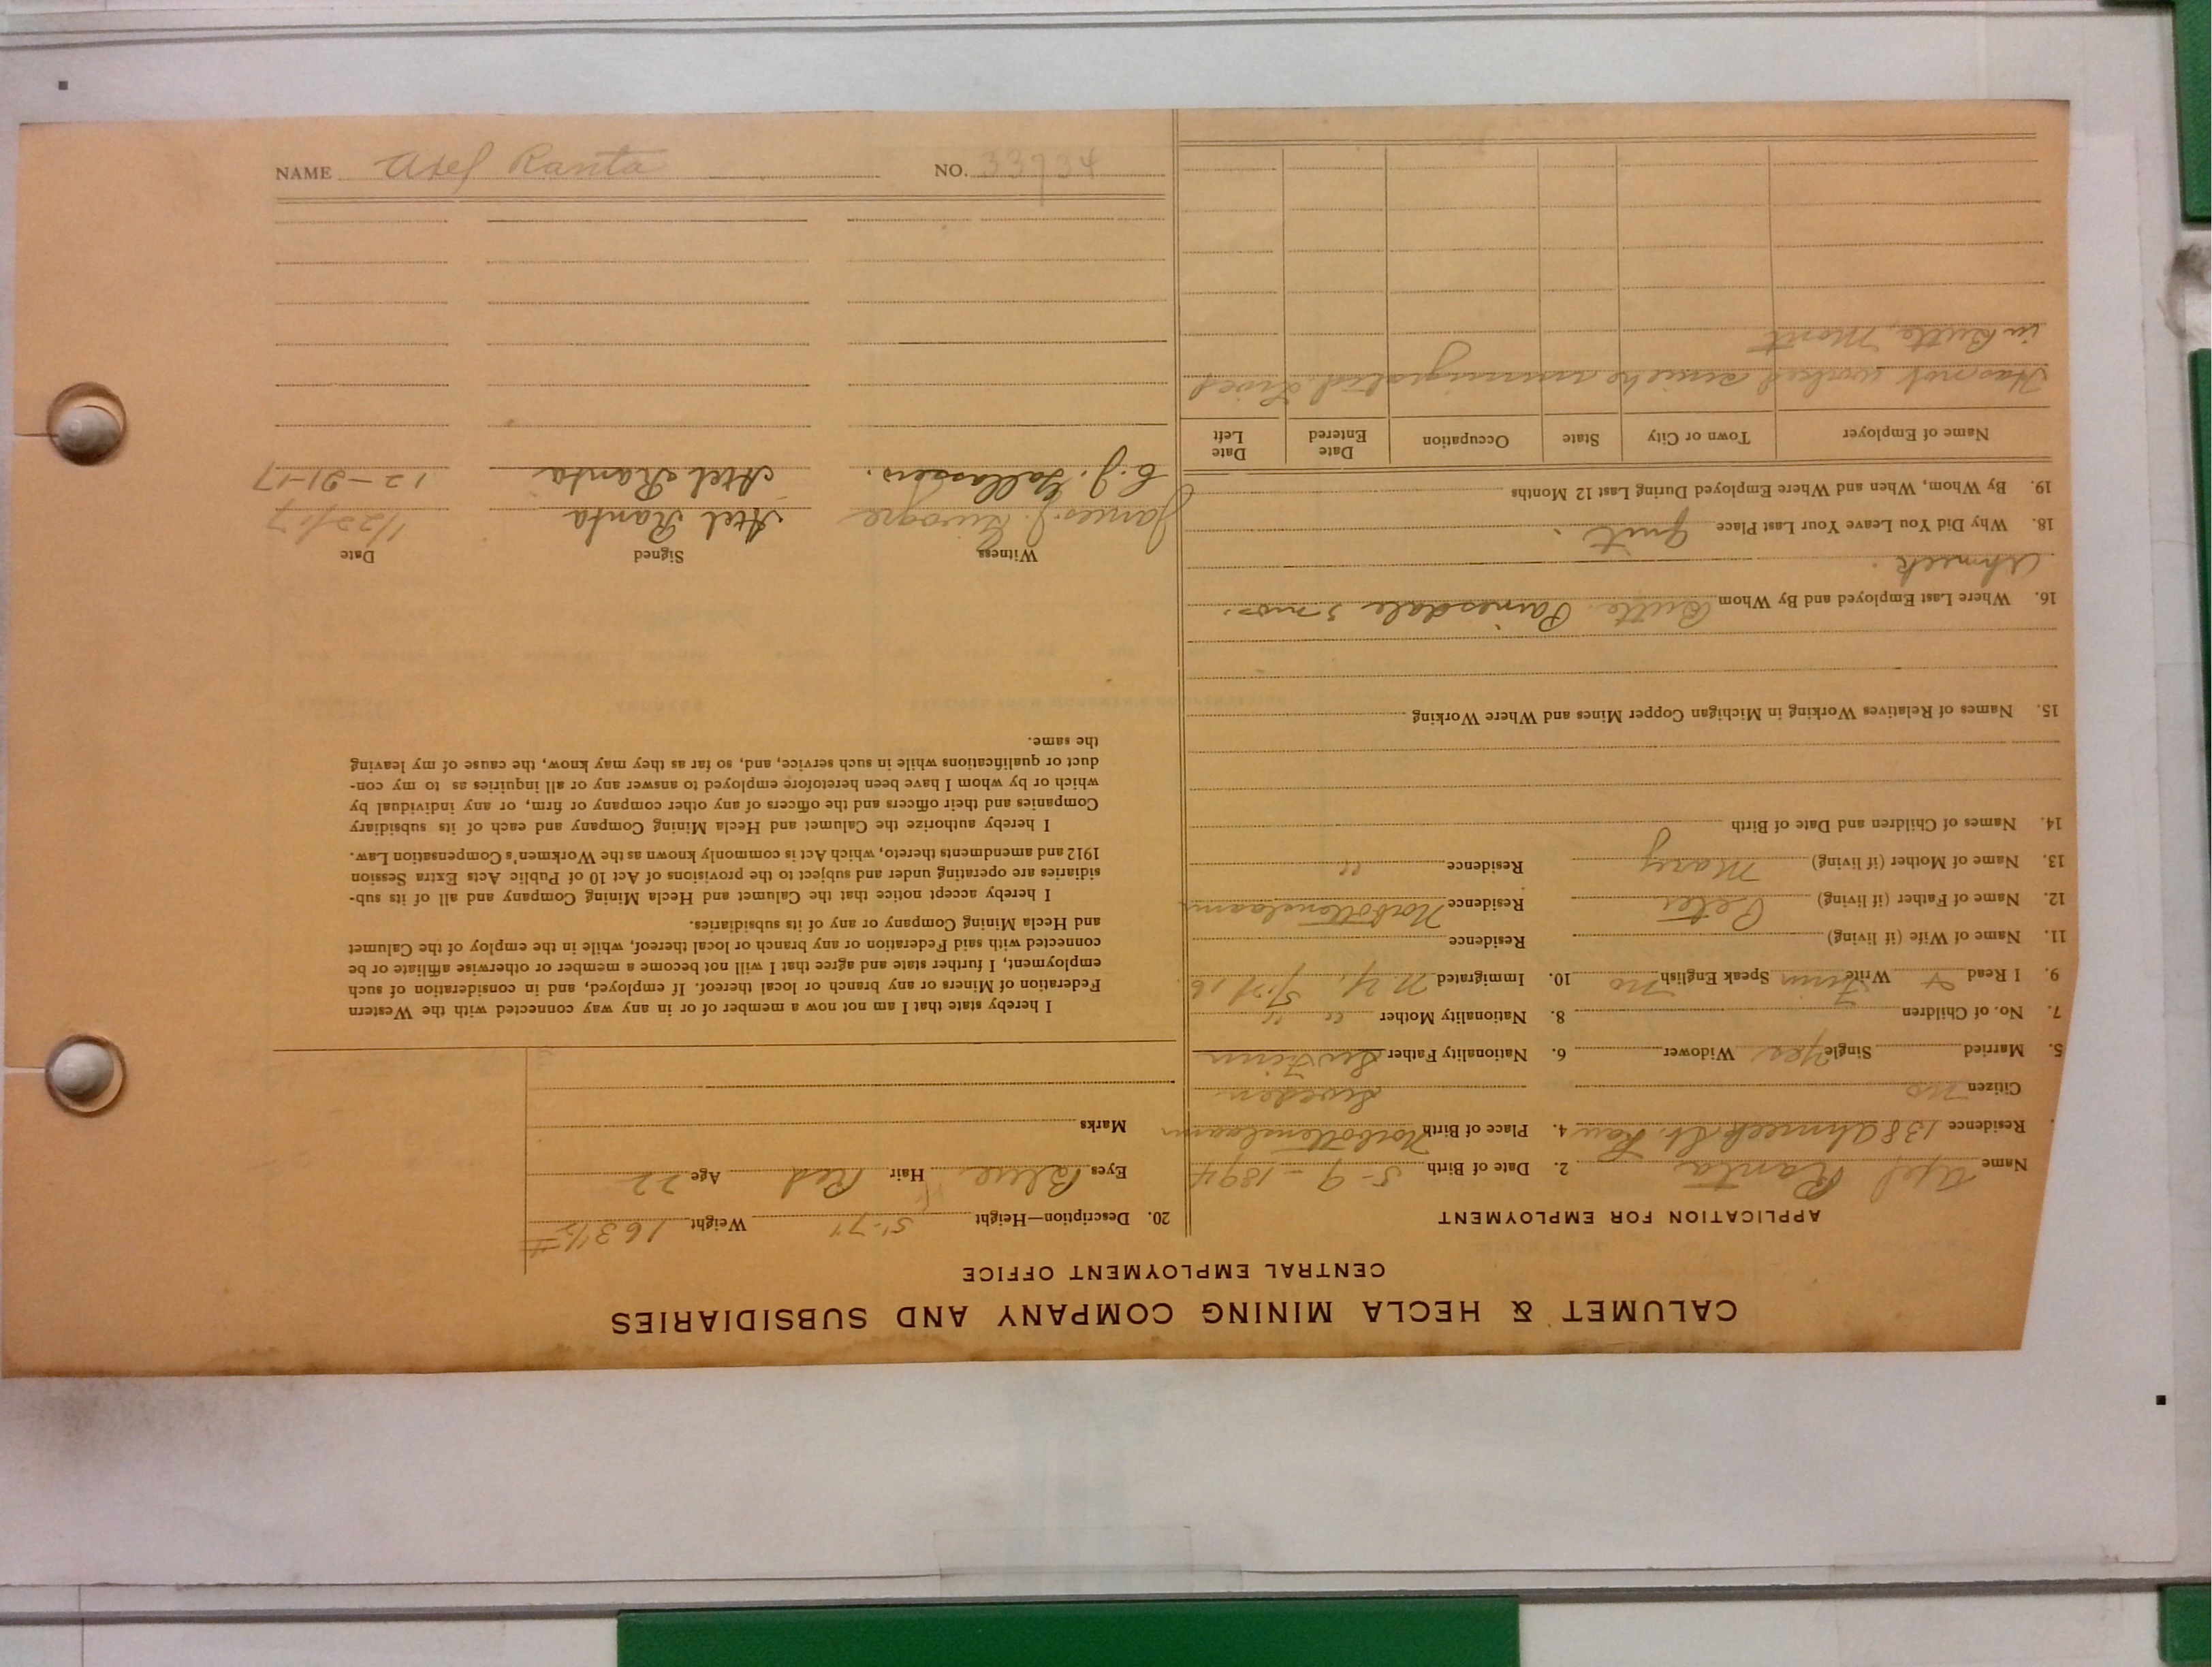 CALUMET & HECLA MINING COMPANY AND SUBSIDIARIES
CENTRAL EMPLOYMENT OFFICE
APPLICATION FOR EMPLOYMENT
Name Axel Ranta 2. Date of Birth 5-9-1894
Residence 138 Ahmeek St. 4. Place of Birth
Citizen no Sweden
5. Married Single Yes Widower 6. Nationality Father
7. No. of Children 8. Nationality Mother " "
9. I Read & Write Finn Speak English no 10. Immigrated N.Y.
11. Name of Wife (if living) Residence
12. Name of Father (if living) Peter Residence
13. Name of Mother (if living) Mary Residence "
14. Names of Children and Date of Birth
15. Names of Relatives Working in Michigan Copper Mines and Where Working
16. Where Last Employed and By Whom Butte. Painesdale 3 mos.
Ahmeek.
18. Why Did You Leave Your Last Place quit.
19. By Whom, When and Where Employed During Last 12 Months
Name of Employer Town or City State Occupation Date Entered Date Left
Has not worked since he immigrated Lived
in Butte, Mont
20. Description—Height 5'-7" Weight 163 1/2 #
Eyes Blue Hair Red Age 22
Marks
I hereby state that I am not now a member of or in any way connected with the Western
Federation of Miners or any branch or local thereof. If employed, and in consideration of such
employment, I further state and agree that I will not become a member or otherwise affiliate or be
connected with said Federation or any branch or local thereof, while in the employ of the Calumet
and Hecla Mining Company or any of its subsidiaries.
I hereby accept notice that the Calumet and Hecla Mining Company and all of its sub-
sidiaries are operating under and subject to the provisions of Act 10 of Public Acts Extra Session
1912 and amendments thereto, which Act is commonly known as the Workmen's Compensation Law.
I hereby authorize the Calumet and Hecla Mining Company and each of its subsidiary
Companies and their officers and the officers of any other company or firm, or any individual by
which or by whom I have been heretofore employed to answer any or all inquiries as to my con-
duct or qualifications while in such service, and, so far as they may know, the cause of my leaving
the same.
Witness Signed Date
James J. Axel Ranta 1/22/17
C. J. Axel Ranta 12-21-17
NAME Axel Ranta NO. 33734